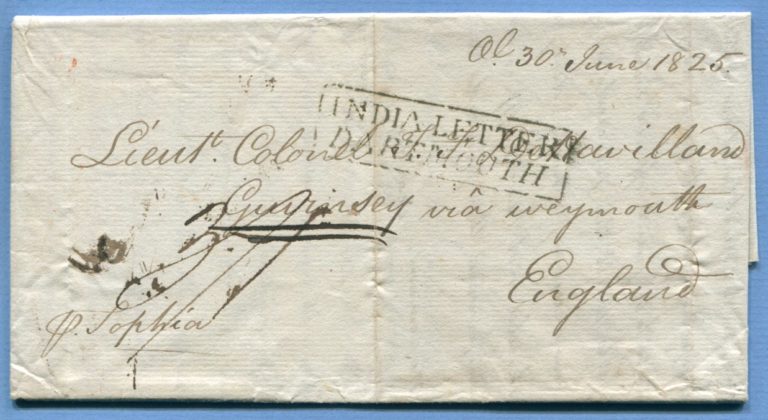 Ol. 30th June 1825.
INDIA LETTER
DARTMOUTH
Lieut. Colonel T. F. De Havilland
Guernsey via weymouth
England
p. Sophia